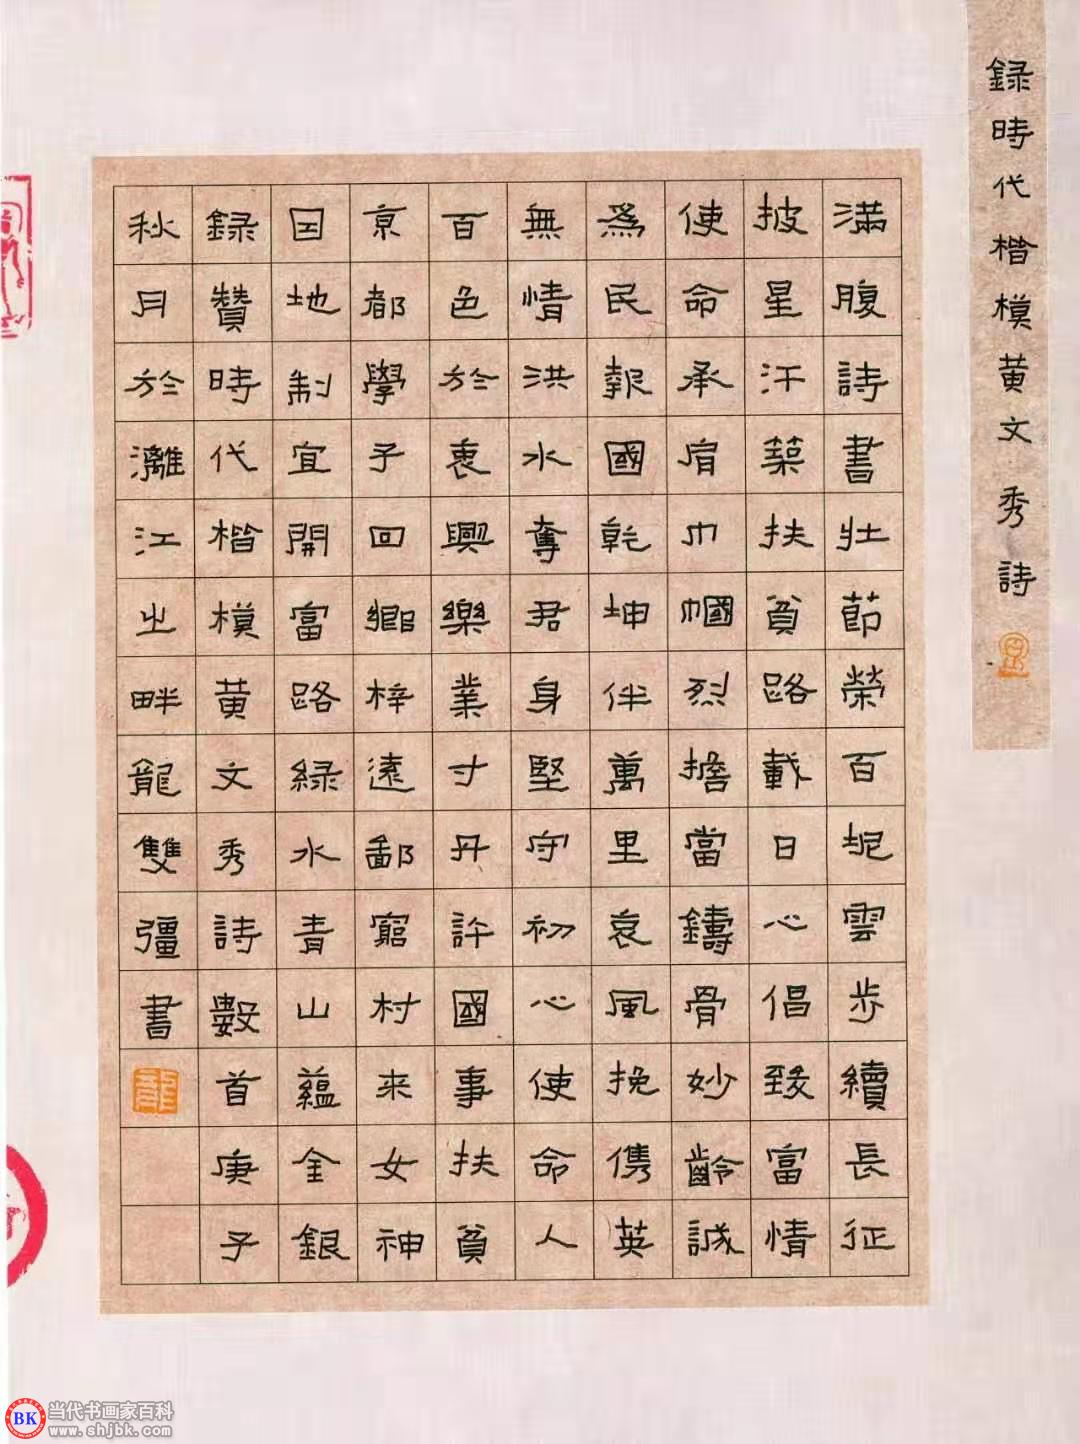 録時代楷模黄文秀詩
滿腹詩書壯節榮百坭雲步續長征
披星汗築扶貧路載日心倡致富情
使命承肩巾幗烈擔當鑄骨妙齡誠
為民報國乾坤伴萬里哀風挽儁英
無情洪水奪君身堅守初心使命人
百色於衷興樂業寸丹許國事扶貧
京都學子回鄉梓遠鄙窮村来女神
因地制宜開富路緑水青山藴金銀
録贊時代楷模黄文秀詩數首庚子
秋月於灕江之畔龍雙彊書
BK 当代书画家百科
www.shjbk.com